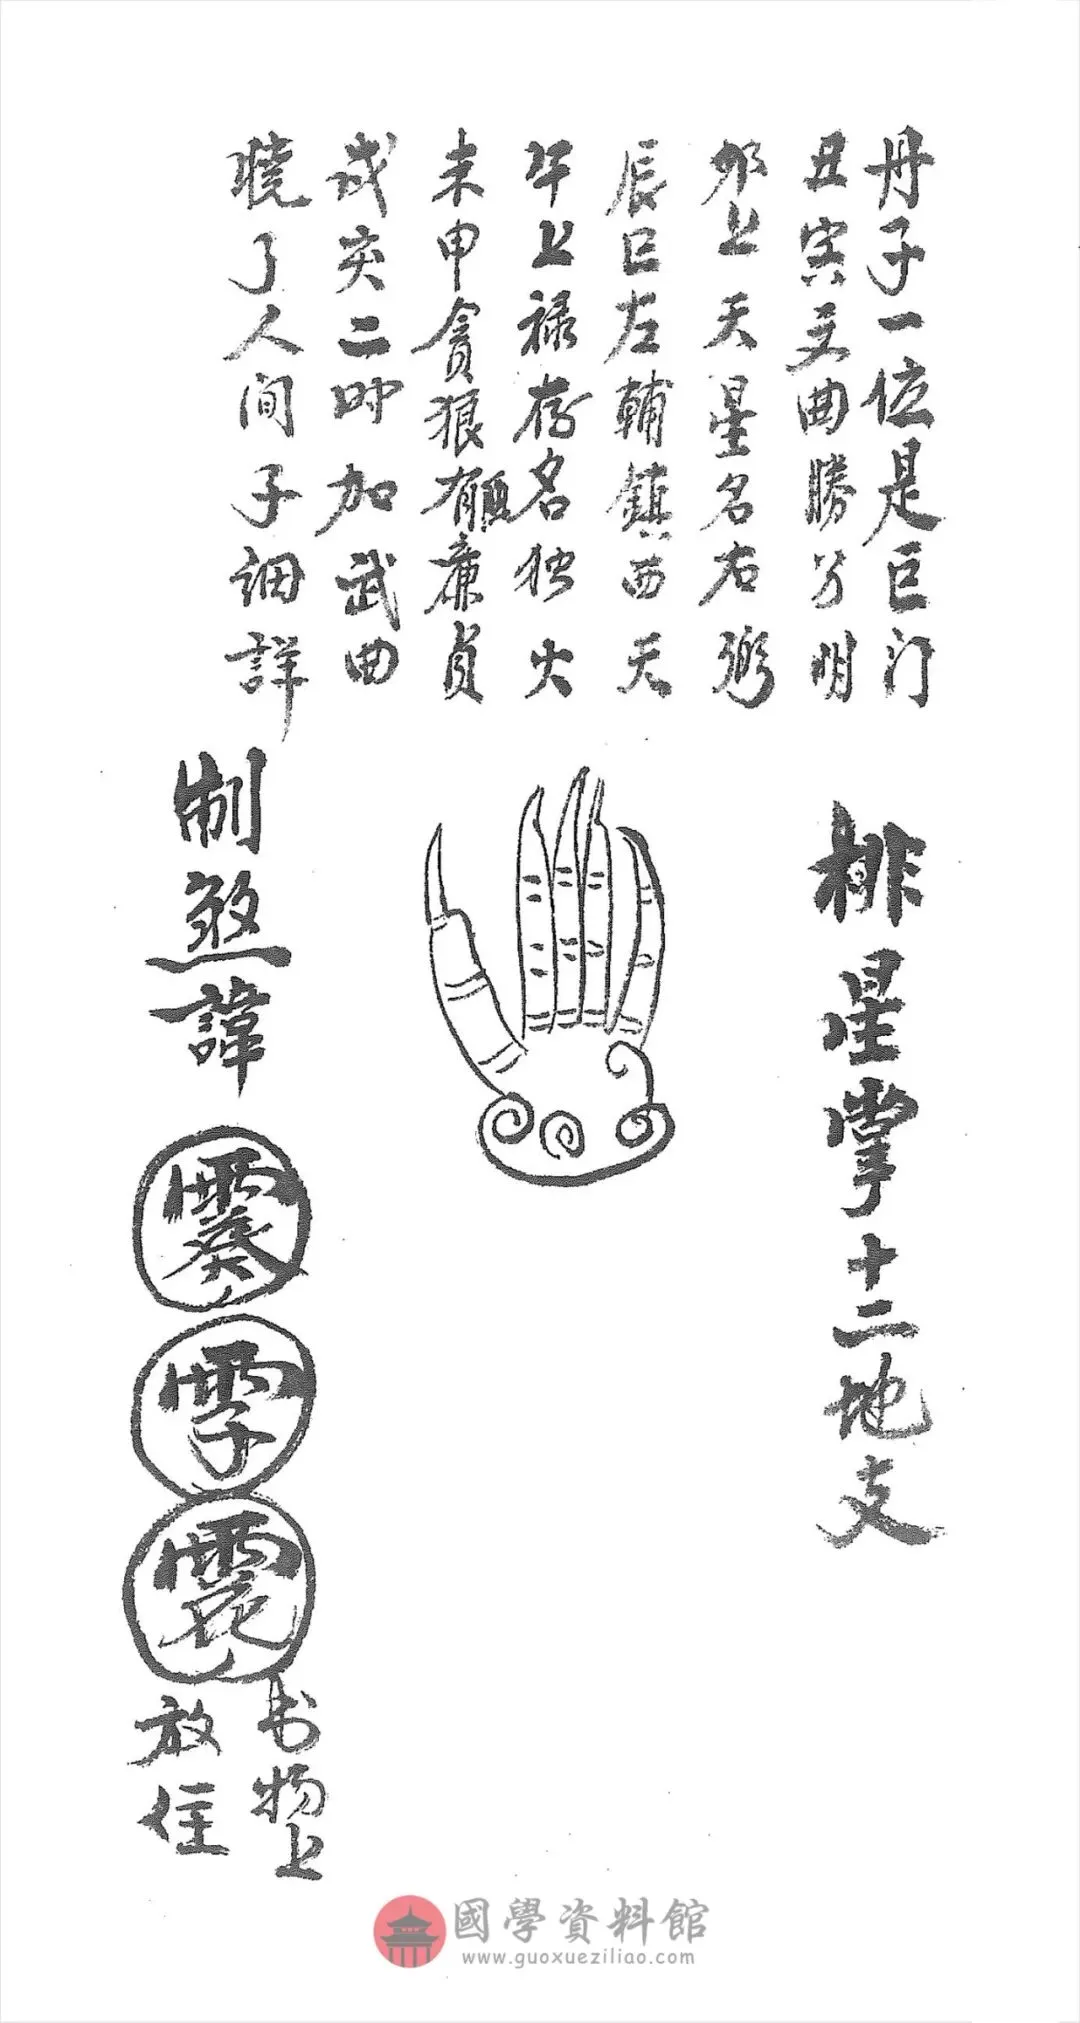 丹子一位是巨门
丑寅文曲勝分明
卯上天星名右弼
辰巳左輔鎮西天
午上禄存名独火
未申貪狼有酉廉貞
戌亥二时加武曲
曉了人间子细詳
排星掌十二地支
制煞諱
书物上
放住
國學資料館
www.guoxueziliao.com